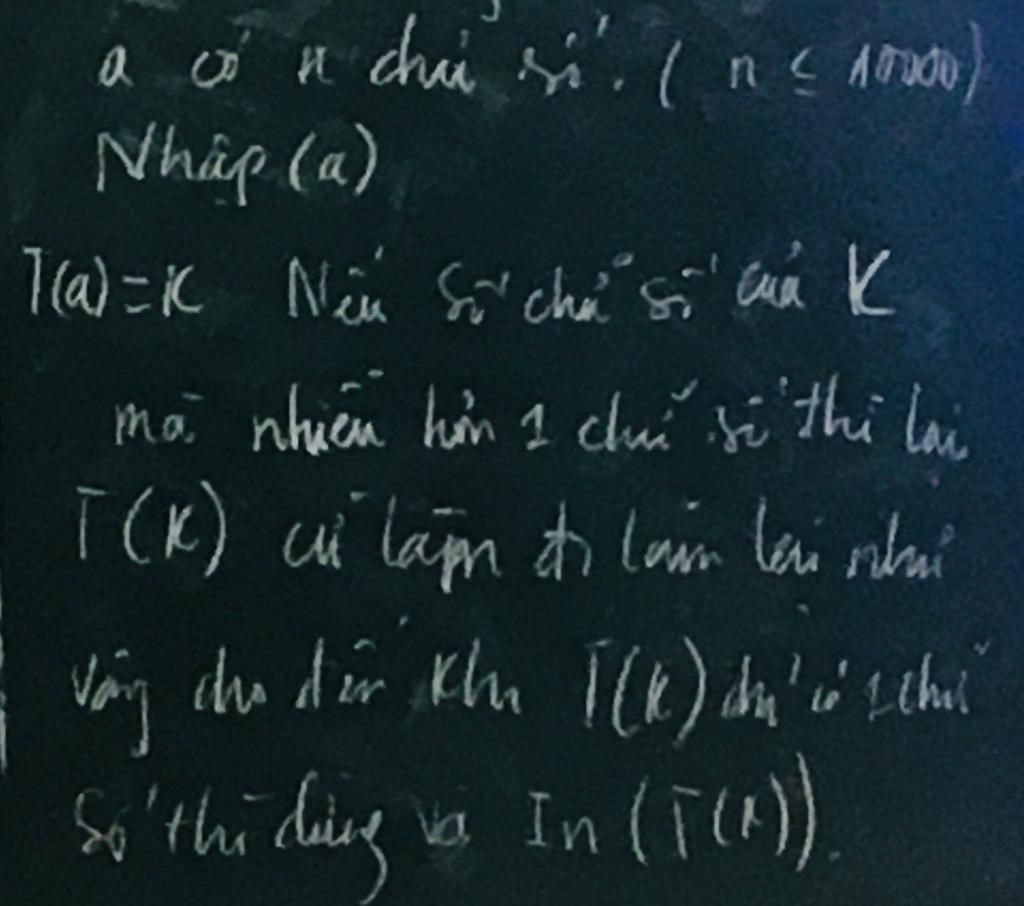 a có n chữ số. ( n ≤ 10000)
Nhập (a)
T(a) = K Nếu số chữ số của K
mà nhiều hơn 1 chữ số thì lại
T(K) cứ lặp đi lặp lại như
vậy cho đến khi T(K) chỉ có 1 chữ
số thì dừng và In (T(K)).